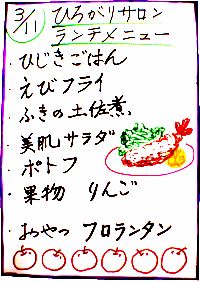 3/11 ひろがりサロン
ランチメニュー
・ひじきごはん
・えびフライ
・ふきの土佐煮
・美肌サラダ
・ポトフ
・果物 りんご
・おやつ フロランタン